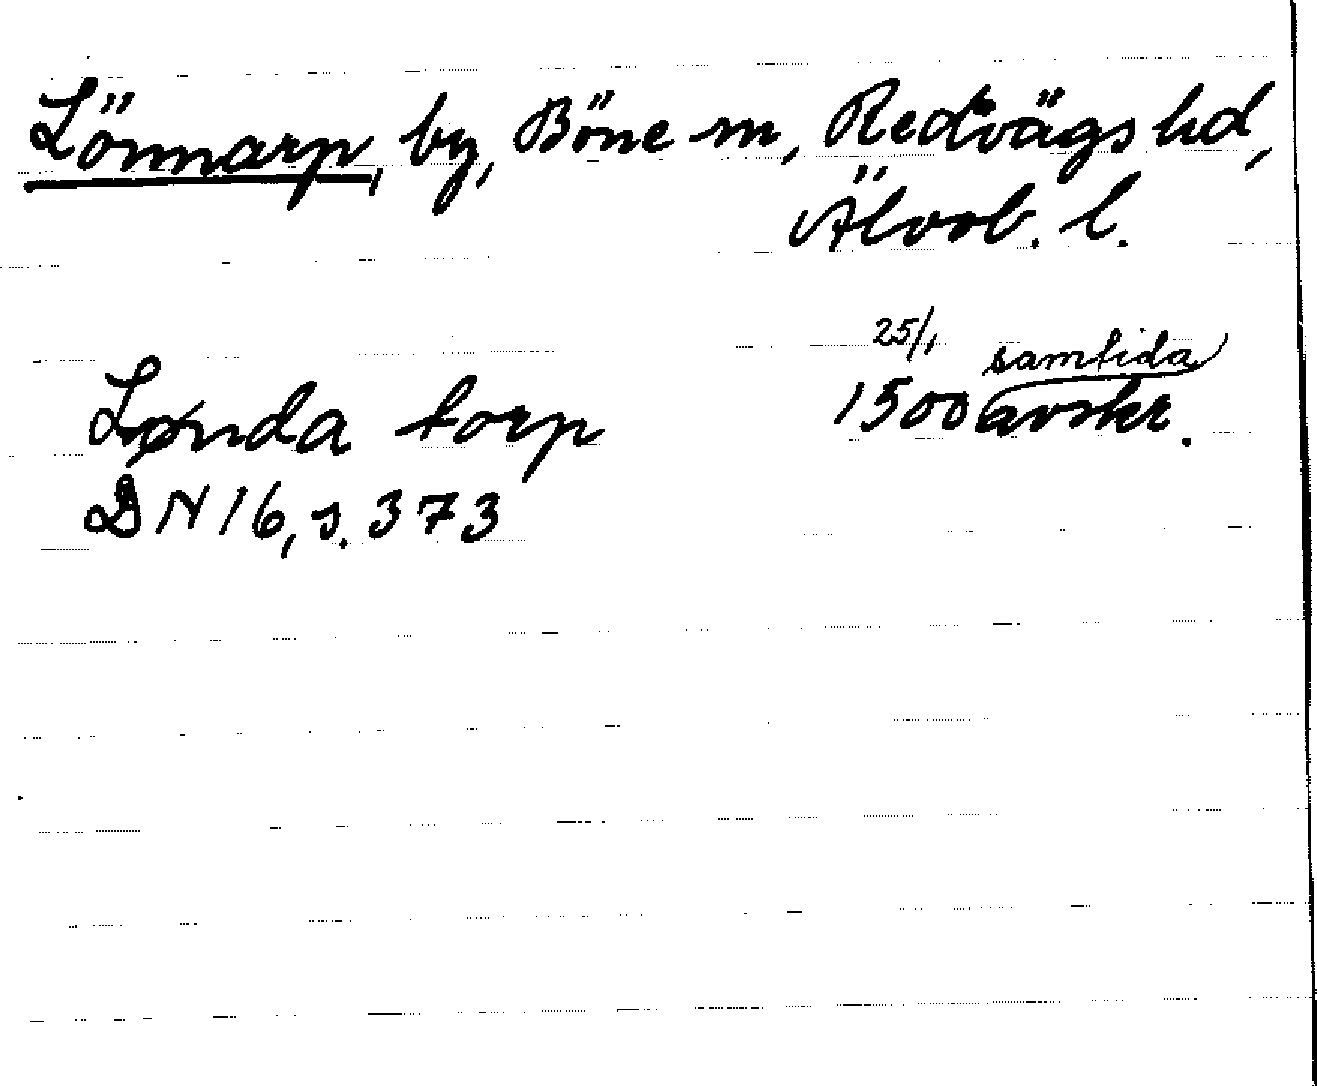 Lönnarp, by, Böne sn, Redvägs hd,
Älvsb. l.
25/1 samtida
Lønda torp 1500 avskr.
DN 16, s. 373